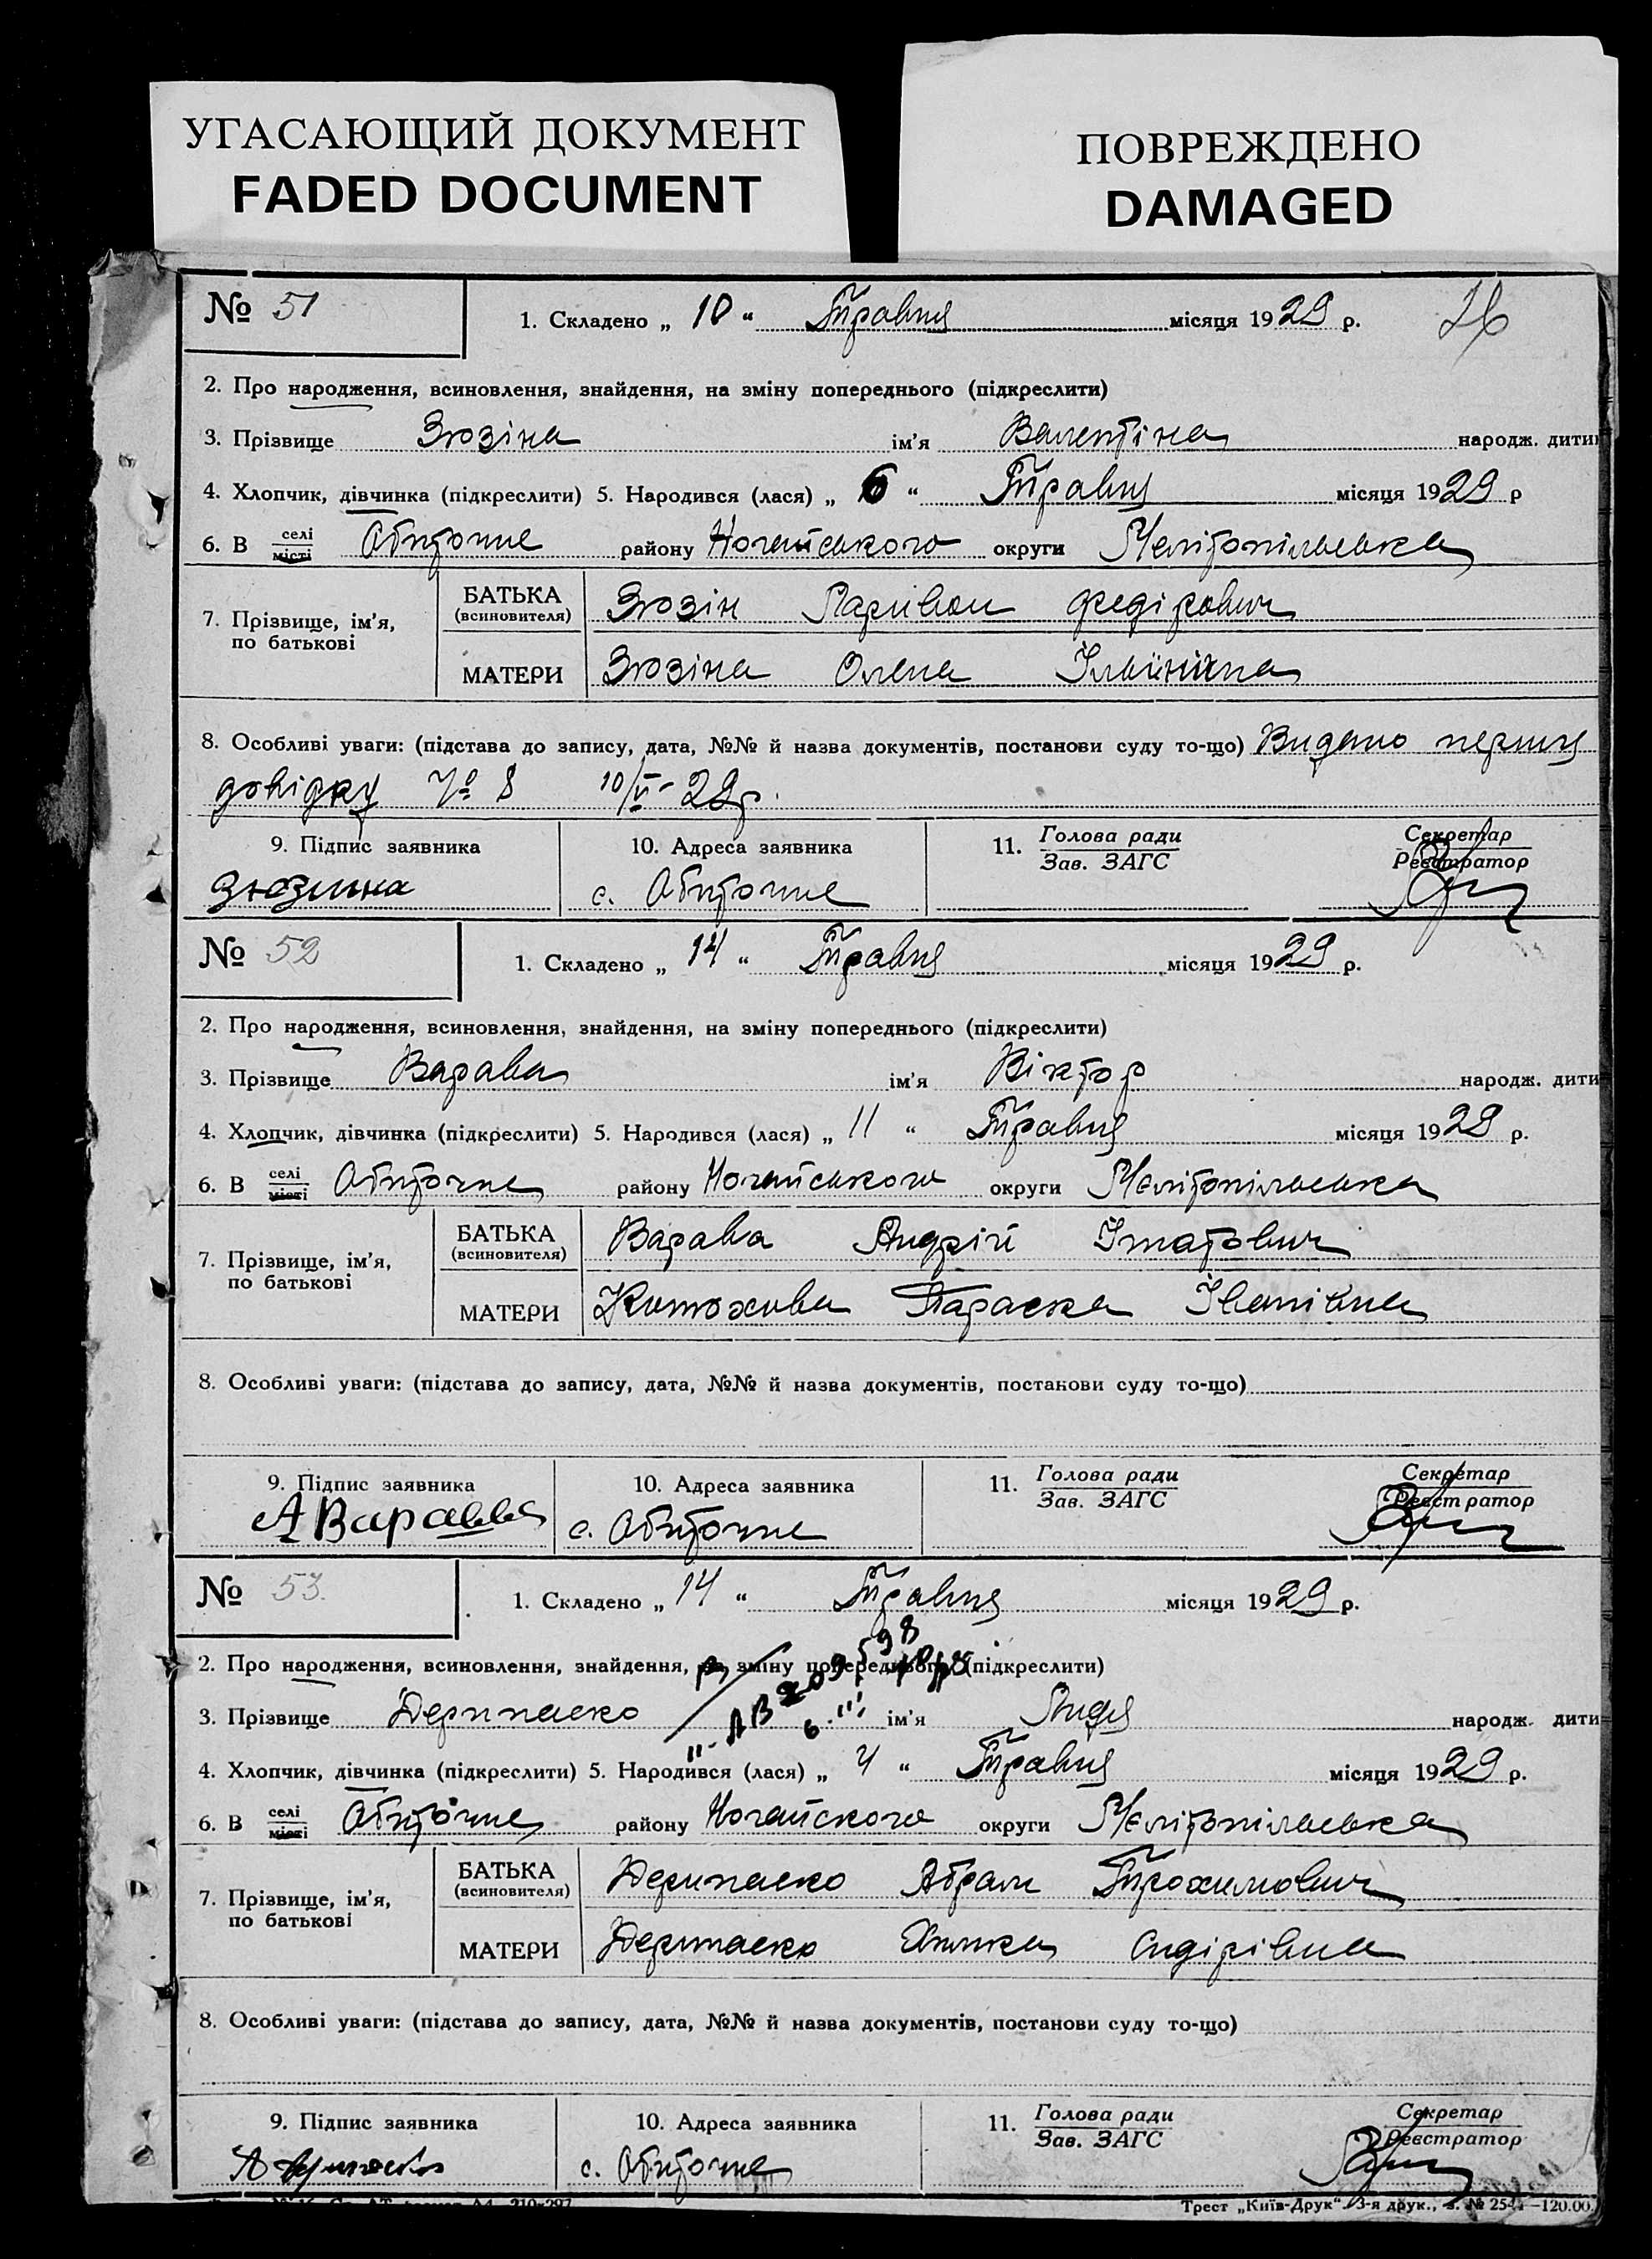 УГАСАЮЩИЙ ДОКУМЕНТ
FADED DOCUMENT
ПОВРЕЖДЕНО
DAMAGED
№ 51
1. Складено „ 10 “ Травня місяця 1929 р.
2. Про народження, всиновлення, знайдення, на зміну попереднього (підкреслити)
3. Прізвище Зюзіна ім'я Валентіна народж. дитин
4. Хлопчик, дівчинка (підкреслити) 5. Народився (лася) „ 6 “ Травня місяця 1929 р
6. В селі місті Обиточне району Ногайського округи Мелітопільська
7. Прізвище, ім'я, по батькові
БАТЬКА (всиновителя) Зюзін Ларивон Федірович
МАТЕРИ Зюзіна Олена Ільїнічна
8. Особливі уваги: (підстава до запису, дата, №№ й назва документів, постанови суду то-що) Видано першу
довідку № 8 10/V-29р.
9. Підпис заявника 10. Адреса заявника 11. Голова ради Зав. ЗАГС Секретар Реєстратор
Зюзина с. Обиточне
№ 52
1. Складено „ 14 “ Травня місяця 1929 р.
2. Про народження, всиновлення, знайдення, на зміну попереднього (підкреслити)
3. Прізвище Варава ім'я Віктор народж. дити
4. Хлопчик, дівчинка (підкреслити) 5. Народився (лася) „ 11 “ Травня місяця 1929 р.
6. В селі місті Обиточне району Ногайського округи Мелітопільська
7. Прізвище, ім'я, по батькові
БАТЬКА (всиновителя) Варава Андрій Ігнатович
МАТЕРИ Параска Іванівна
8. Особливі уваги: (підстава до запису, дата, №№ й назва документів, постанови суду то-що)
9. Підпис заявника 10. Адреса заявника 11. Голова ради Зав. ЗАГС Секретар Реєстратор
А Варавва с. Обиточне
№ 53
1. Складено „ 14 “ Травня місяця 1929 р.
2. Про народження, всиновлення, знайдення, на зміну попереднього (підкреслити)
3. Прізвище Дерипаско ім'я Лидя народж. дити
4. Хлопчик, дівчинка (підкреслити) 5. Народився (лася) „ 4 “ Травня місяця 1929 р.
6. В селі місті Обиточне району Ногайского округи Мелітопільська
7. Прізвище, ім'я, по батькові
БАТЬКА (всиновителя) Дерипаско Абрам Трохимович
МАТЕРИ Дерипаско Сидірівна
8. Особливі уваги: (підстава до запису, дата, №№ й назва документів, постанови суду то-що)
9. Підпис заявника 10. Адреса заявника 11. Голова ради Зав. ЗАГС Секретар Реєстратор
А с. Обиточне
Трест „Київ-Друк“. 3-я друк.,